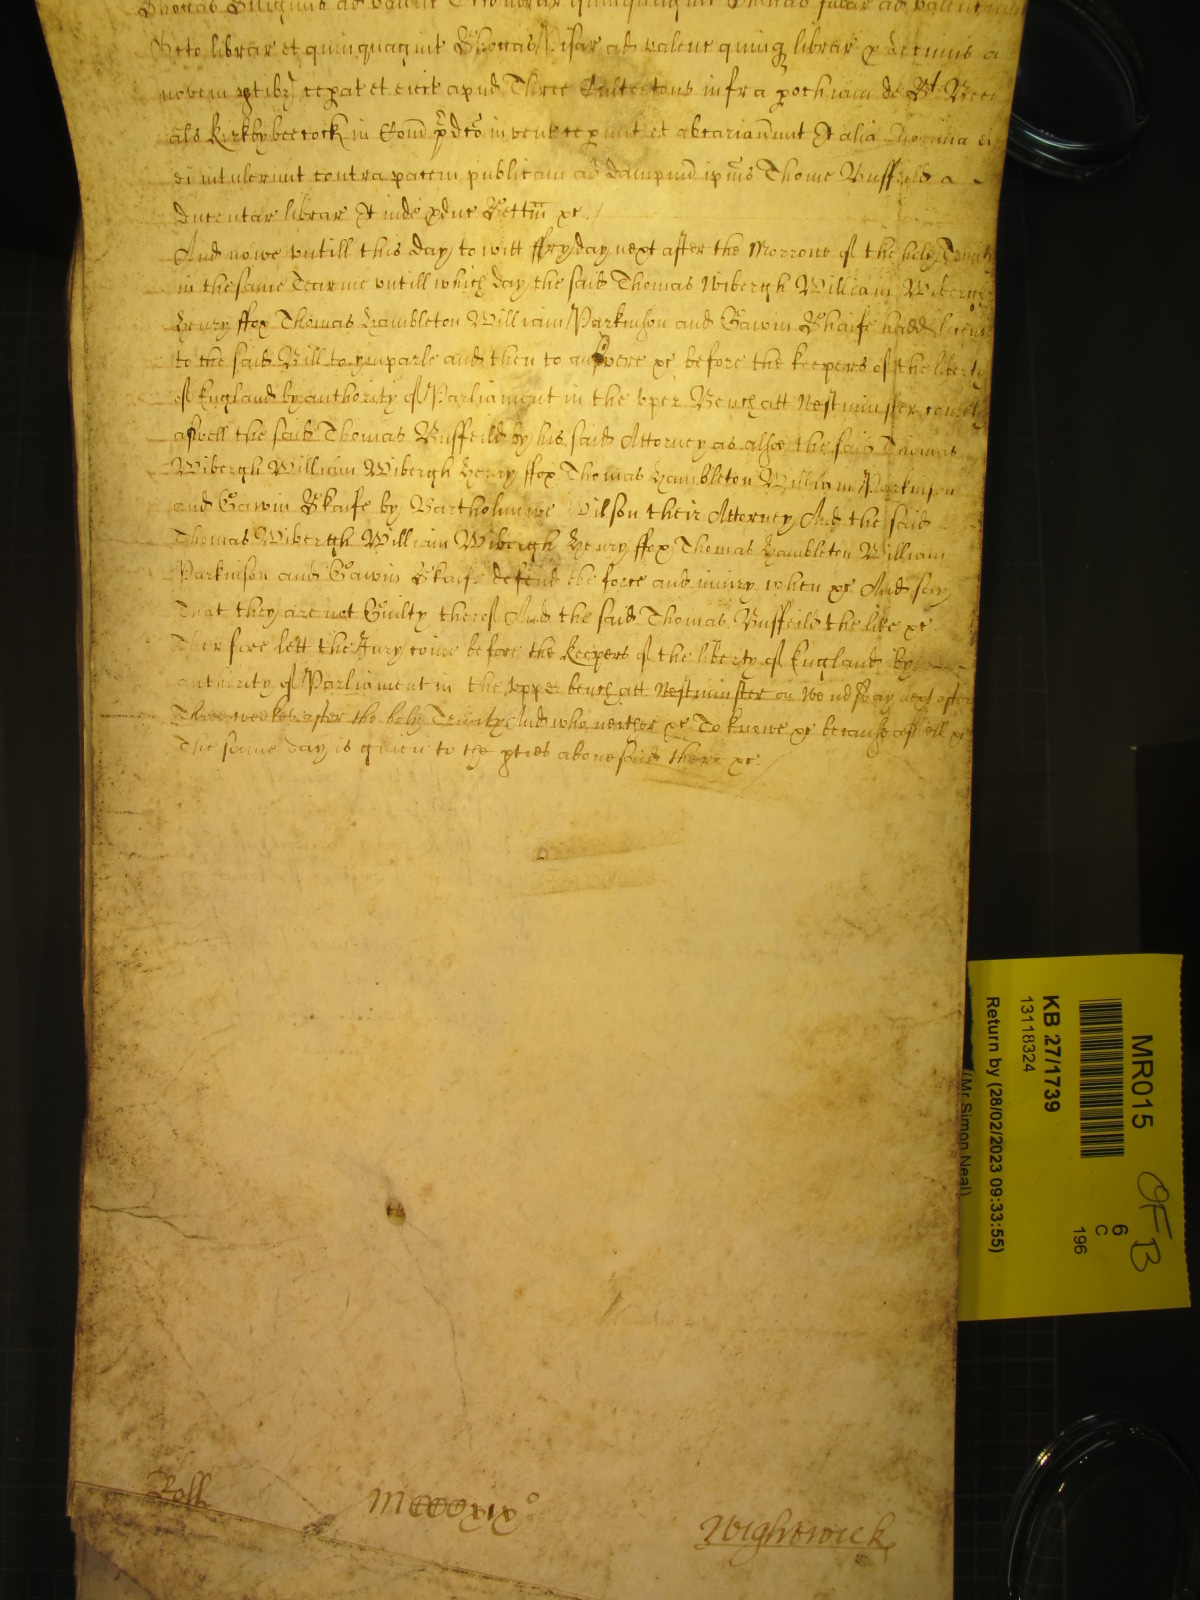 Shottas Siliginis ad valenc Octo librar quinquagint Shottas
Octo librar et quinquagint Shottas Pisar ad valenc quinq librar p decimis a
novem ptibz cepat et exit apud Three infra pochiam de St Bees
als Kirkbybeecock in Com pdco invent cepunt et abcariaverunt Et alia Enormia ei
ei intulerunt contra pacem publicam ad dampnu ipius Thome Bussfeild a
ducentar librar Et inde pduc Sectm &c
And nowe untill this day to witt ffryday next after the Morrowe of the holy Trinity
in the same Tearme untill which day the said Thomas Wibergh William Wibergh
Henry ffox Thomas Hambleton William Parkinson and Gawin Skaife hadd licens
to the said Bill to ymparle and then to answere &c before the keepers of the liberty
of England by authority of Parliament in the vper Bench att Westminster come
aswell the said Thomas Bussfeild by his said Attorney as alsoe the said Thomas
Wibergh William Wibergh Henry ffox Thomas Hambleton William Parkinson
and Gawin Skaife by Bartholmwe Wilson their Attorney And the said
Thomas Wibergh William Wibergh Henry ffox Thomas Hambleton William
Parkinson and Gawin Skaife defend the force and iniury when &c And say
That they are not Guilty therof And the said Thomas Bussfeild the like &c
Therfore lett the Jury come before the keepers of the liberty of England by
authority of Parliament in the vpper bench att Westminster on Wendsday next after
Three weekes after the holy Trinity And who neither &c To knowe &c because aswell &c
The same day is given to the pties abovesaid there &c
Roll
MCCCCxix°
Wightwick
MR015
KB 27/1739
13118324
Return by (28/02/2023 09:33:55)
(Mr Simon Neal)
6
C
196
OFB